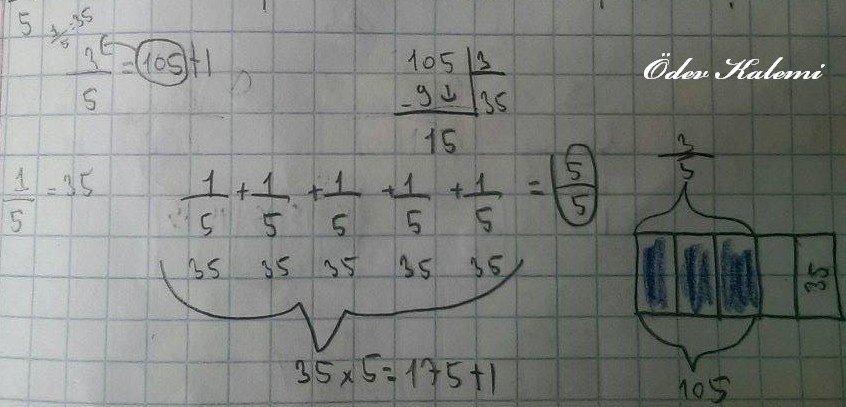 5 1/5=35
3/5 = 105+1
105 | 3
-9↓ 35
15
Ödev Kalemi
1/5 = 35
1/5 + 1/5 + 1/5 + 1/5 + 1/5 = 5/5
35 35 35 35 35
35×5=175+1
3/5
35
105